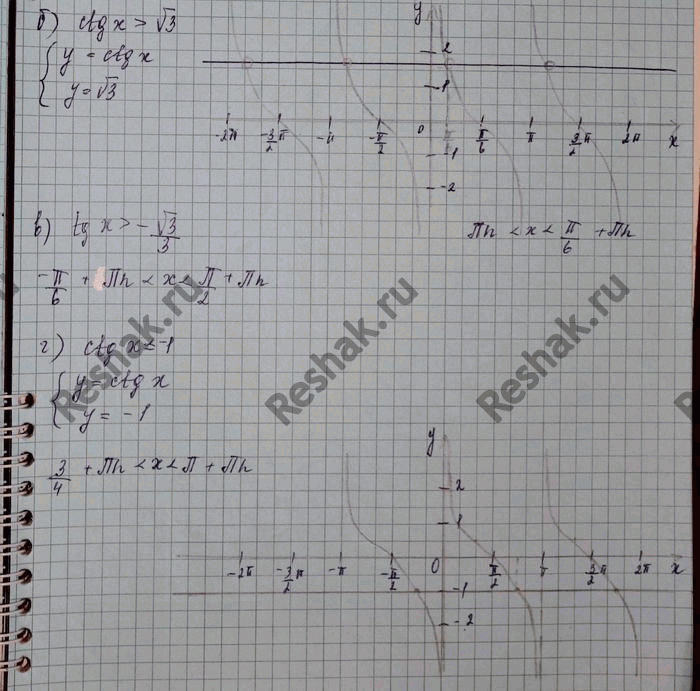 б) ctg x > √3
{ y = ctg x
y = √3
y
2
1
-2π -3/2 π -π -π/2 0 π/6 π 3/2 π 2π x
-1
-2
в) tg x > - √3/3
πn < x < π/6 + πn
-π/6 + πn < x < π/2 + πn
г) ctg x < -1
{ y = ctg x
y = -1
3/4 + πn < x < π + πn
y
2
1
-2π -3/2 π -π -π/2 0 π/2 π 3/2 π 2π x
-1
-2
Reshak.ru
Reshak.ru
Reshak.ru